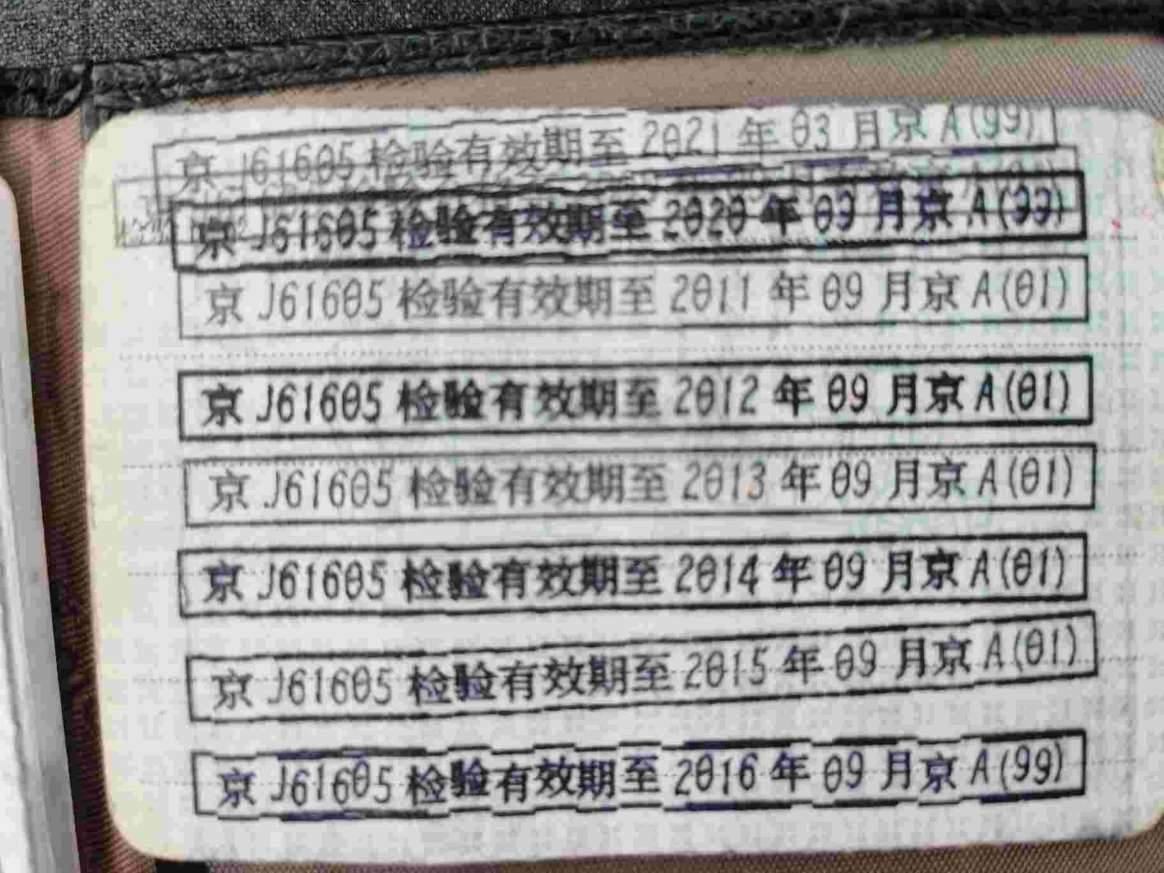 京 J61605 检验有效期至 2021 年 03 月京 A(99)
京 J61605 检验有效期至 2020 年 09 月京 A(99)
京 J61605 检验有效期至 2011 年 09 月京 A(01)
京 J61605 检验有效期至 2012 年 09 月京 A(01)
京 J61605 检验有效期至 2013 年 09 月京 A(01)
京 J61605 检验有效期至 2014 年 09 月京 A(01)
京 J61605 检验有效期至 2015 年 09 月京 A(01)
京 J61605 检验有效期至 2016 年 09 月京 A(99)